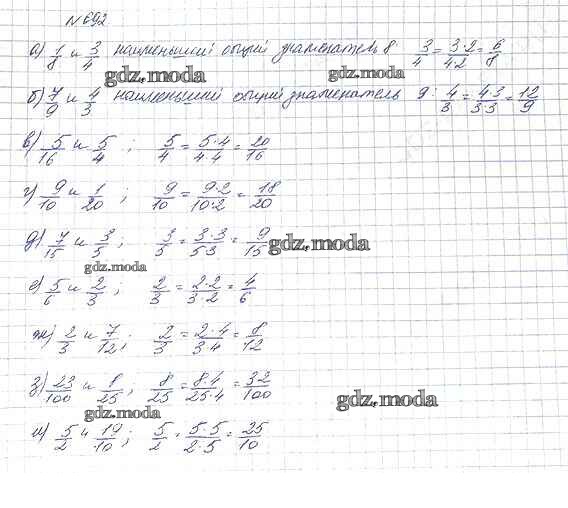 N 692
а) 1/8 и 3/4 наименьший общий знаменатель 8 3/4 = 3·2/4·2 = 6/8
gdz.moda gdz.moda
б) 7/9 и 4/3 наименьший общий знаменатель 9: 4/3 = 4·3/3·3 = 12/9
в) 5/16 и 5/4 ; 5/4 = 5·4/4·4 = 20/16
г) 9/10 и 1/20 ; 9/10 = 9·2/10·2 = 18/20
д) 7/15 и 3/5 ; 3/5 = 3·3/5·3 = 9/15 gdz.moda
gdz.moda
е) 5/6 и 2/3 ; 2/3 = 2·2/3·2 = 4/6
ж) 2/3 и 7/12 ; 2/3 = 2·4/3·4 = 8/12
з) 23/100 и 8/25 ; 8/25 = 8·4/25·4 = 32/100
gdz.moda gdz.moda
и) 5/2 и 19/10 ; 5/2 = 5·5/2·5 = 25/10